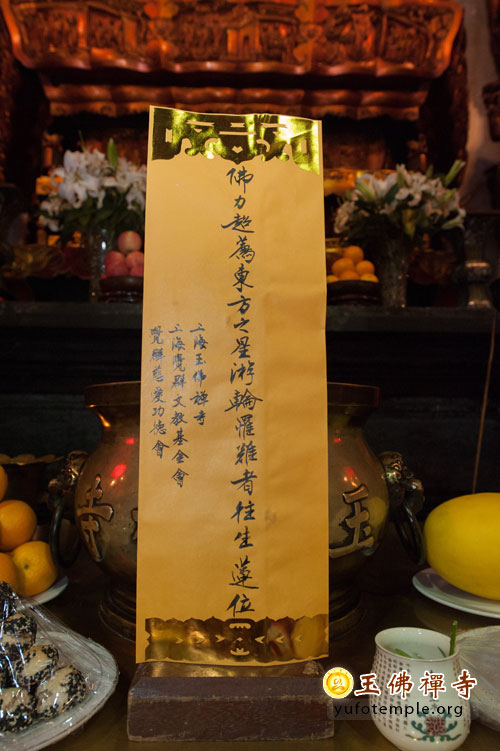 佛力超薦東方之星游輪罹難者往生蓮位
上海玉佛禪寺
上海覺群文教基金會
覺群慈愛功德會
寺
玉
玉佛禪寺
yufotemple.org